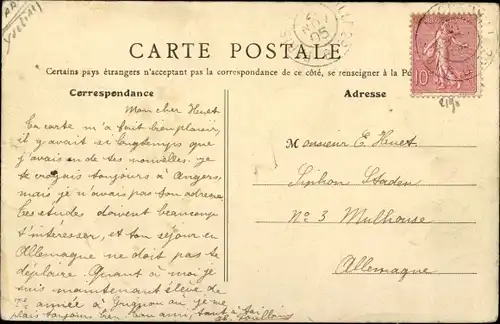 CARTE POSTALE
Certains pays étrangers n'acceptant pas la correspondance de ce côté, se renseigner à la
Correspondance
Adresse
10
Mon cher Huet
Ta carte m'a fait bien plaisir,
il y avait si longtemps que
j'avais eu de tes nouvelles. je
te croyais toujours à Angers,
mais je n'avais pas ton adresse
Les études doivent beaucoup
t'intéresser, et ton séjour en
Allemagne ne doit pas te
déplaire. Quant à moi je
suis maintenant élève de
2me année à Grignon où je me
plais toujours bien. ton ami, tout à toi
Monsieur E. Huet
Siphon Staden
No 3 Mulhouse
Allemagne